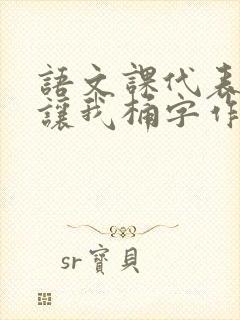 語文課代表
讓我桶字作
sr寶貝